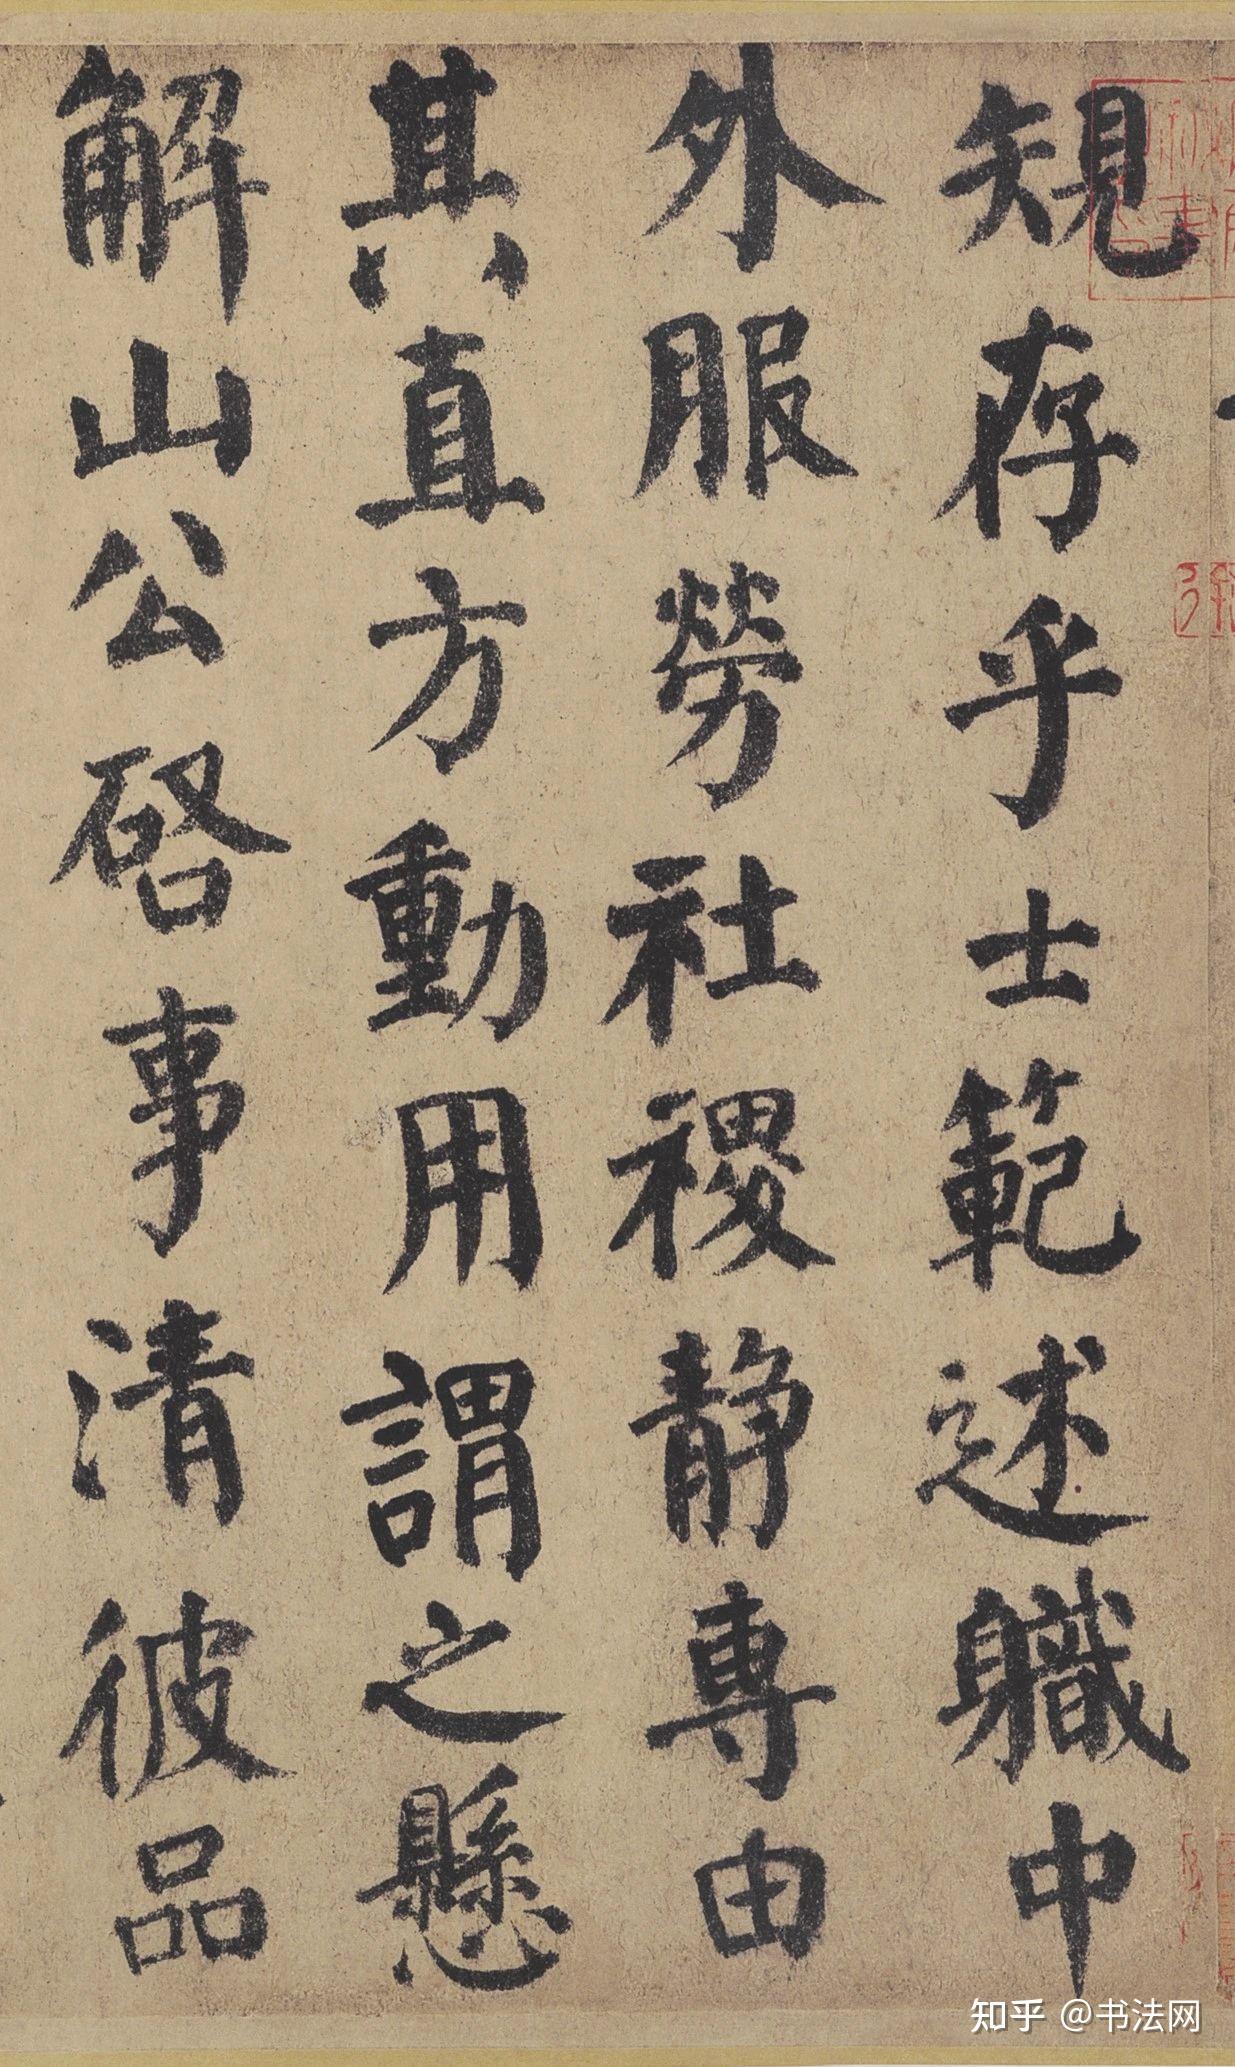 規存乎士範述職中
外服勞社稷静專由
其直方動用謂之懸
解山公啓事清彼品
知乎 @书法网